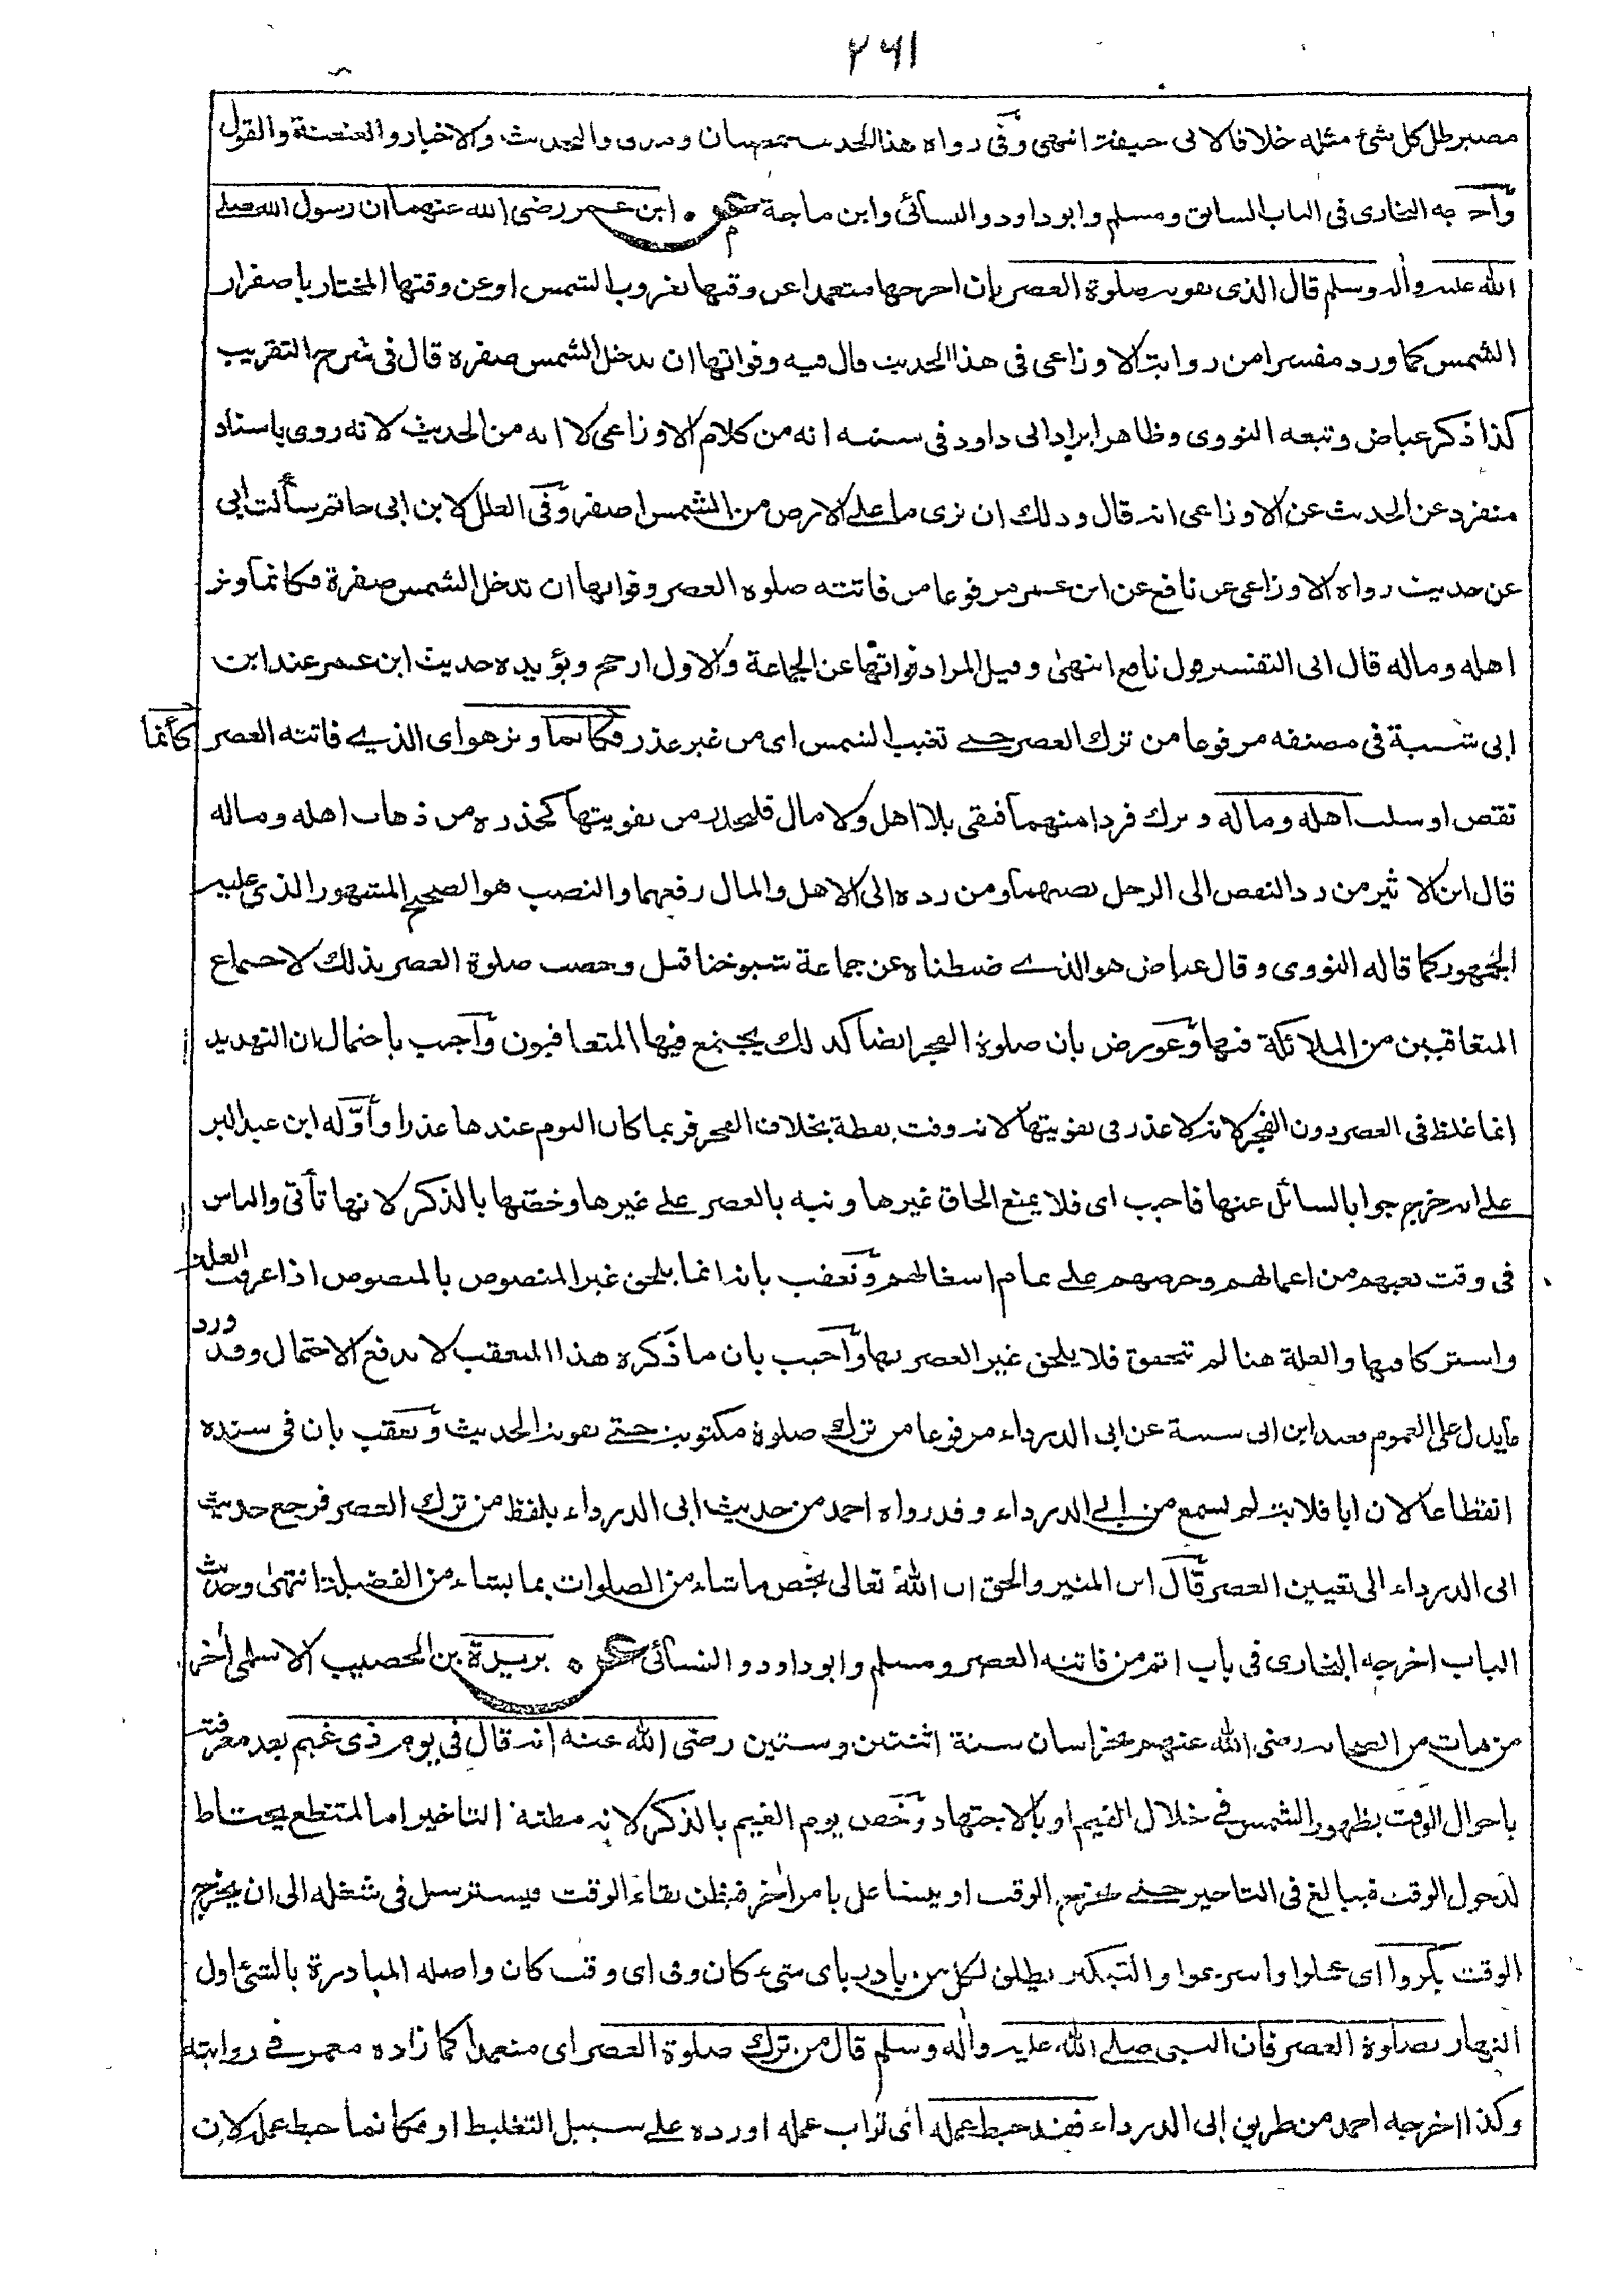 ۲۶۱
مصير ظل كل شئ مثله خلافا لابى حنيفة انتهى وفى رواه هذا الحديث والتحديث والاخبار والعنعنة والقول
وأخرجه البخارى فى الباب السابق ومسلم وابو داود والنسائى وابن ماجة عن ابن عمر رضى الله عنهما ان رسول الله صلے
الله عليه وأله وسلم قال الذى تفوته صلوة العصر بان اخرجها متعمدا عن وقتها بغروب الشمس او عن وقتها المختار باصفرار
الشمس كما ورد مفسرا من رواية الاوزاعى فى هذا الحديث قال فيه وفواتها ان تدخل الشمس صفره قال فى شرح التقريب
كذا ذكر عياض وتبعه النووى وظاهر ايراد ابى داود فى سننه انه من كلام الاوزاعى لا انه من الحديث لانه روى باسناد
منفرد عن الحديث عن الاوزاعى انه قال وذلك ان ترى ما على الارض من الشمس اصفر وفى العلل لابن ابى حاتم سألت ابى
عن حديث رواه الاوزاعى عن نافع عن ابن عمر مرفوعا من فاتته صلوه العصر وفواتها ان تدخل الشمس صفرة فكانما وتر
اهله وماله قال ابى التفسير قول نافع انتهى وقيل المراد فواتها عن الجماعة والاول ارجح ويؤيده حديث ابن عمر عند ابن
ابى شيبة فى مصنفه مرفوعا من ترك العصر حتے تغيب الشمس اى من غير عذر فكانما وتر هو اى الذے فاتته العصر كأنما
نقص او سلب اهله وماله وترك فردا منهما فبقى بلا اهل ولا مال فليحذر من تفويتها كحذره من ذهاب اهله وماله
قال ابن الاثير من رد النقص الى الرجل نصبهما ومن رده الى الاهل والمال رفعهما والنصب هو الصحيح المشهور الذى عليه
الجمهور كما قاله النووى وقال عياض هو الذے ضبطناه عن جماعة شيوخنا قيل وخصت صلوة العصر بذلك لاجتماع
المتعاقبين من الملائكة فيها وعورض بان صلوة الفجر ايضا كذلك يجتمع فيها المتعاقبون وأجيب باحتمال ان التهديد
انما غلظ فى العصر دون الفجر لانه لا عذر فى تفويتها لانه وقت يقظة بخلاف الفجر فربما كان النوم عندها عذرا وأوّله ابن عبد البر
على انه خرج جوابا لسائل عنها فاجيب اى فلا يمنع الحاق غيرها ونبه بالعصر على غيرها وخصها بالذكر لانها تأتى والناس
فى وقت تعبهم من اعمالهم وحرصهم على تمام اشغالهم وتعقب بانه انما يلحق غير المنصوص بالمنصوص اذا عرفت العلة
واشتركا فيها والعلة هنا لم تتحقق فلا يلحق غير العصر بها وأجيب بان ما ذكره هذا المتعقب لا يدفع الاحتمال وقد ورد
ما يدل على العموم فعند ابن ابى شيبة عن ابى الدرداء مرفوعا من ترك صلوة مكتوبة حتے تفوته الحديث وتعقب بان فى سنده
انقطاعا لان ابا قلابة لم يسمع من ابى الدرداء وقد رواه احمد من حديث ابى الدرداء بلفظ من ترك العصر فرجع حديث
ابى الدرداء الى تعيين العصر قال ابن المنير والحق ان الله تعالى يخص ما شاء من الصلوات بما يشاء من الفضيلة انتهى وحديث
الباب اخرجه البخارى فى باب اثم من فاتته العصر ومسلم وابو داود والنسائى عن بريدة بن الحصيب الاسلمى أخر
من مات من الصحابه رضى الله عنهم بخراسان سنة اثنتين وستين رضى الله عنه انه قال فى يوم ذى غيم بعد معرفته
باحوال الوقت بظهور الشمس فى خلال الغيم او بالاجتهاد وخص يوم الغيم بالذكر لانه مظنة التاخير اما لمتنطع يحتاط
لدخول الوقت فيبالغ فى التاخير حتے يخرج الوقت او يتشاغل بامر أخر فيظن بقاء الوقت فيسترسل فى شغله الى ان يخرج
الوقت بكروا اى عجلوا واسرعوا والتبكير يطلق لكل من بادر باى شئ كان وفى اى وقت كان واصله المبادرة بالشئ اول
النهار بصلوة العصر فان النبى صلے الله عليه وأله وسلم قال من ترك صلوة العصر اى متعمدا كما زاده معمر فى روايته
وكذا اخرجه احمد من طريق ابى الدرداء فقد حبط عمله اى ثواب عمله اورده على سبيل التغليظ او فكانما حبط عمله لان